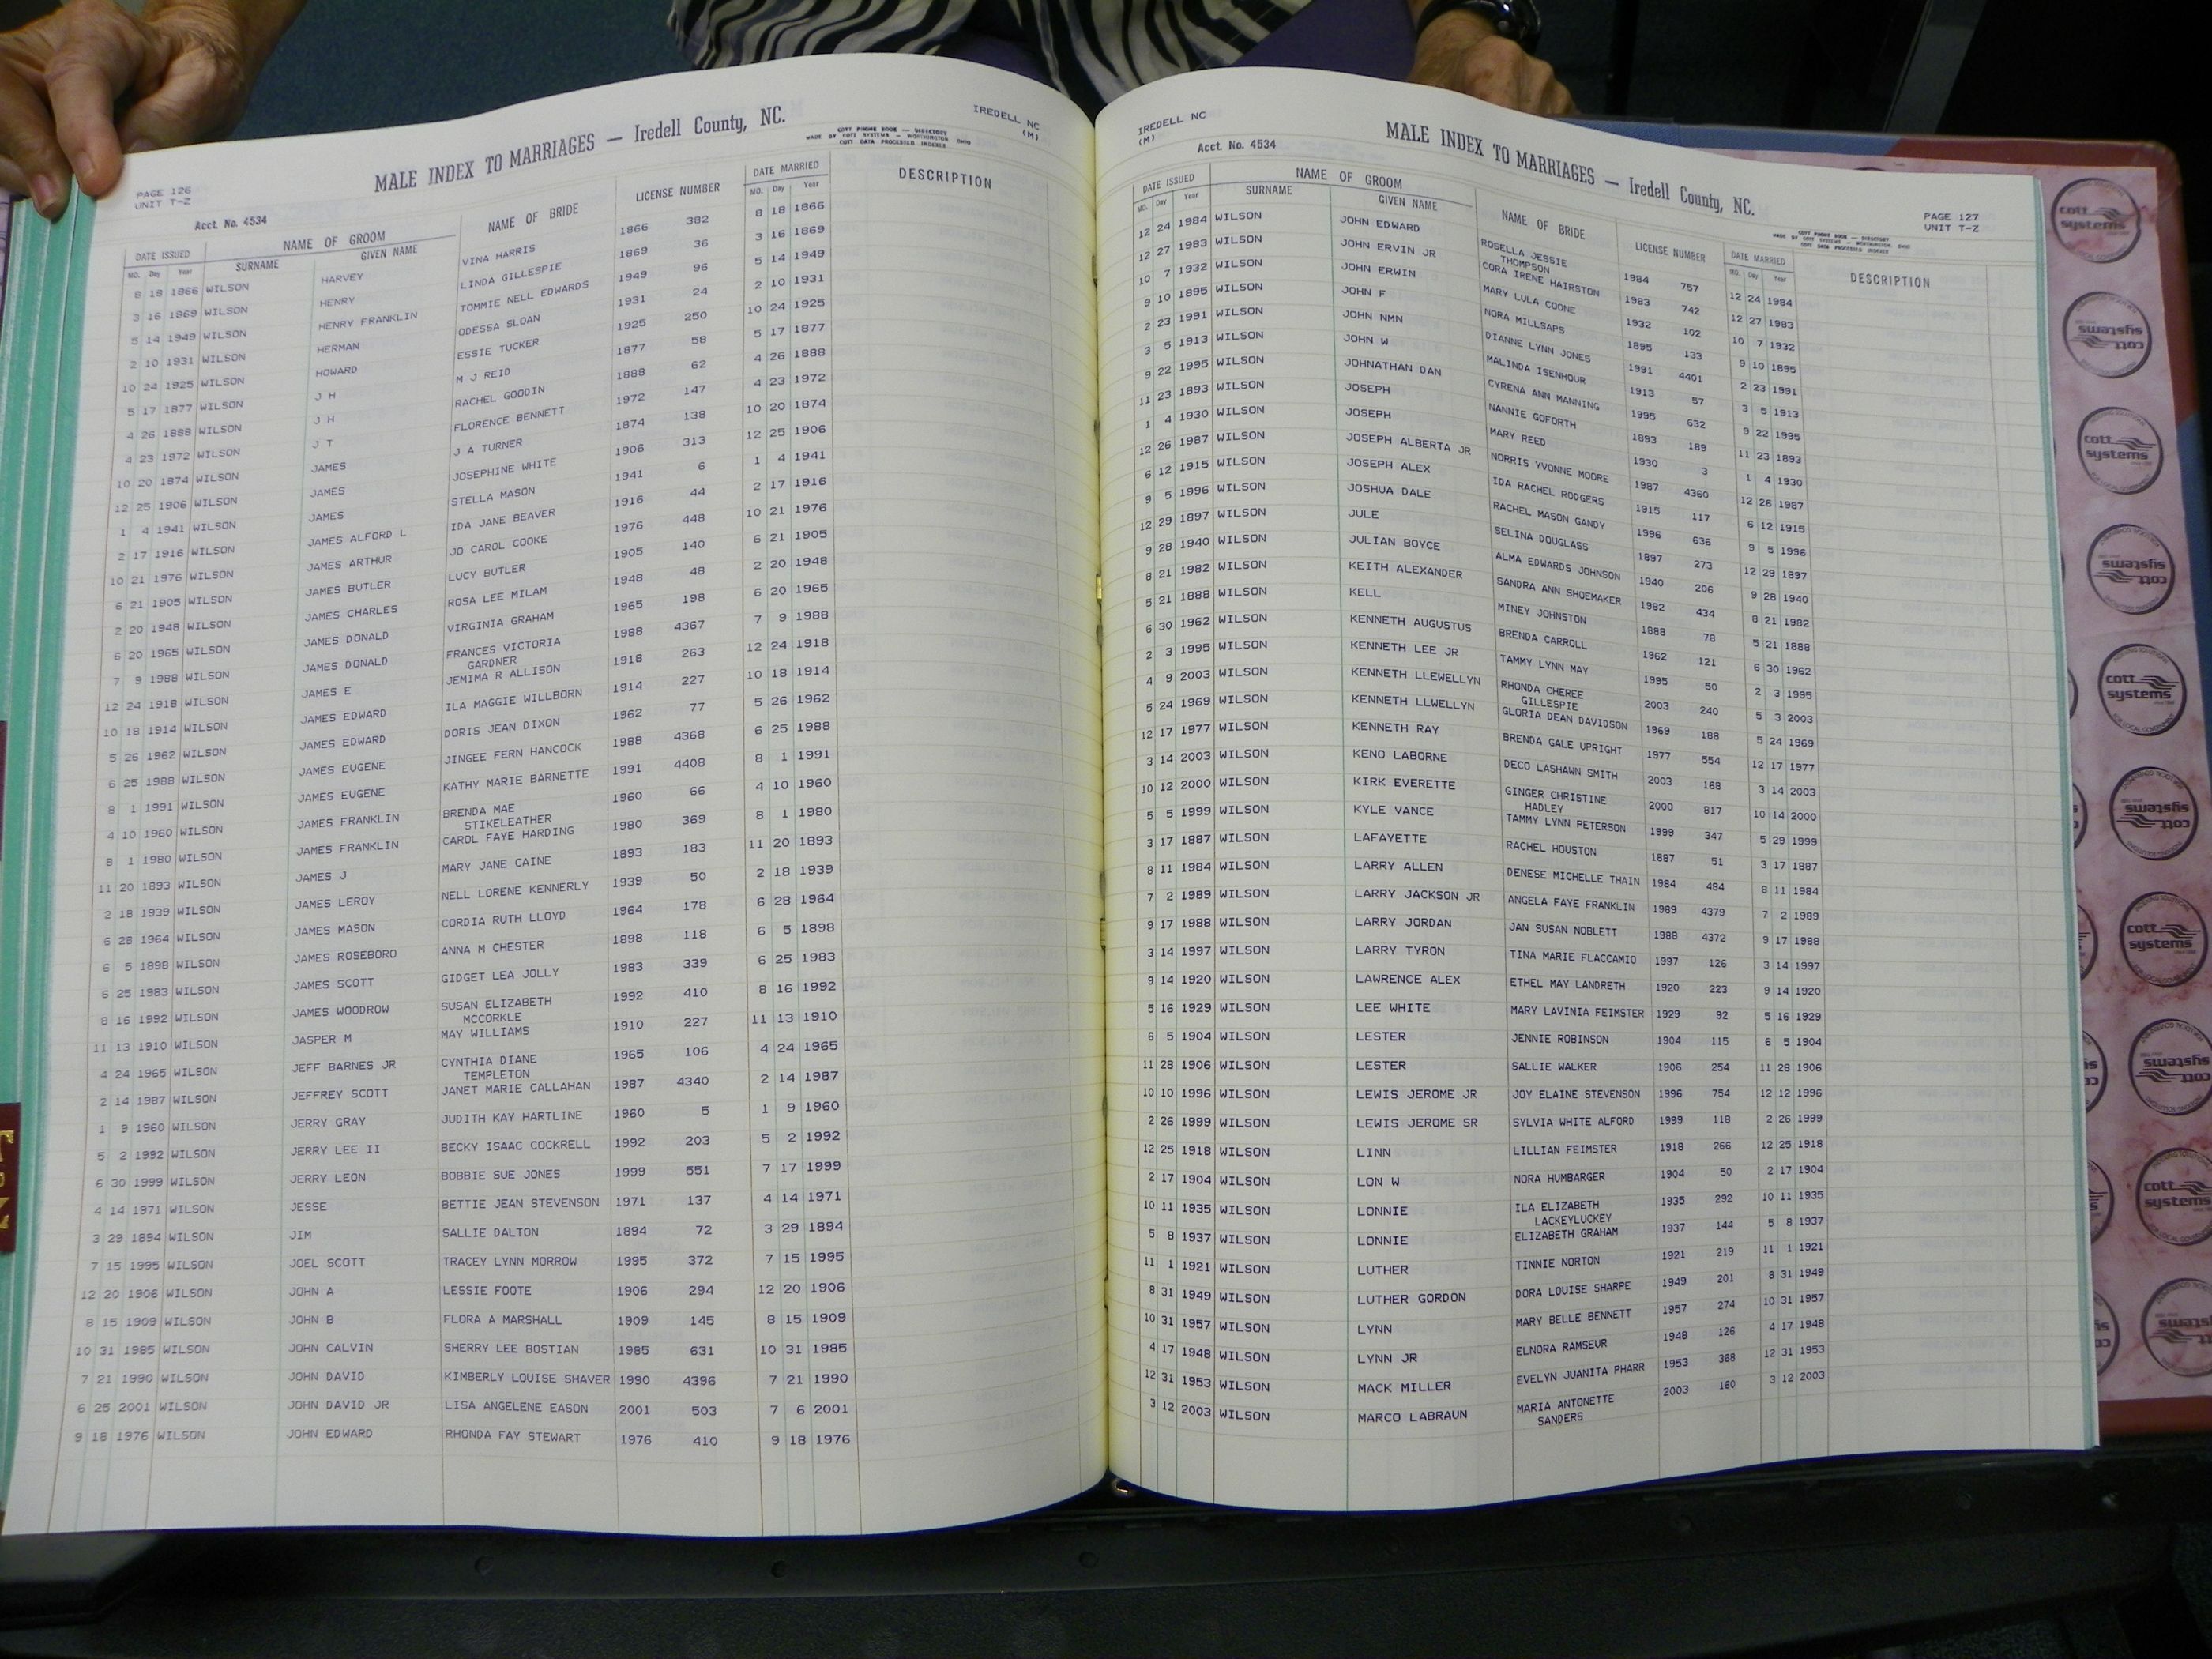 IREDELL NC
(M)
MALE INDEX TO MARRIAGES — Iredell County, NC.
COTT PHONE BOOK — DIRECTORY
MADE BY COTT SYSTEMS — WORTHINGTON, OHIO
COTT DATA PROCESSED INDEXES
PAGE 126
UNIT T-Z
Acct. No. 4534
DATE ISSUED NAME OF GROOM NAME OF BRIDE LICENSE NUMBER DATE MARRIED DESCRIPTION
MO. Day Year SURNAME GIVEN NAME MO. Day Year
8 18 1866 WILSON HARVEY VINA HARRIS 1866 382 8 18 1866
3 16 1869 WILSON HENRY LINDA GILLESPIE 1869 36 3 16 1869
5 14 1949 WILSON HENRY FRANKLIN TOMMIE NELL EDWARDS 1949 96 5 14 1949
2 10 1931 WILSON HERMAN ODESSA SLOAN 1931 24 2 10 1931
10 24 1925 WILSON HOWARD ESSIE TUCKER 1925 250 10 24 1925
5 17 1877 WILSON J H M J REID 1877 58 5 17 1877
4 26 1888 WILSON J H RACHEL GOODIN 1888 62 4 26 1888
4 23 1972 WILSON J T FLORENCE BENNETT 1972 147 4 23 1972
10 20 1874 WILSON JAMES J A TURNER 1874 138 10 20 1874
12 25 1906 WILSON JAMES JOSEPHINE WHITE 1906 313 12 25 1906
1 4 1941 WILSON JAMES STELLA MASON 1941 6 1 4 1941
2 17 1916 WILSON JAMES ALFORD L IDA JANE BEAVER 1916 44 2 17 1916
10 21 1976 WILSON JAMES ARTHUR JO CAROL COOKE 1976 448 10 21 1976
6 21 1905 WILSON JAMES BUTLER LUCY BUTLER 1905 140 6 21 1905
2 20 1948 WILSON JAMES CHARLES ROSA LEE MILAM 1948 48 2 20 1948
6 20 1965 WILSON JAMES DONALD VIRGINIA GRAHAM 1965 198 6 20 1965
7 9 1988 WILSON JAMES DONALD FRANCES VICTORIA 1988 4367 7 9 1988
GARDNER
12 24 1918 WILSON JAMES E JEMIMA R ALLISON 1918 263 12 24 1918
10 18 1914 WILSON JAMES EDWARD ILA MAGGIE WILLBORN 1914 227 10 18 1914
5 26 1962 WILSON JAMES EDWARD DORIS JEAN DIXON 1962 77 5 26 1962
6 25 1988 WILSON JAMES EUGENE JINGEE FERN HANCOCK 1988 4368 6 25 1988
8 1 1991 WILSON JAMES EUGENE KATHY MARIE BARNETTE 1991 4408 8 1 1991
4 10 1960 WILSON JAMES FRANKLIN BRENDA MAE 1960 66 4 10 1960
STIKELEATHER
8 1 1980 WILSON JAMES FRANKLIN CAROL FAYE HARDING 1980 369 8 1 1980
11 20 1893 WILSON JAMES J MARY JANE CAINE 1893 183 11 20 1893
2 18 1939 WILSON JAMES LEROY NELL LORENE KENNERLY 1939 50 2 18 1939
6 28 1964 WILSON JAMES MASON CORDIA RUTH LLOYD 1964 178 6 28 1964
6 5 1898 WILSON JAMES ROSEBORO ANNA M CHESTER 1898 118 6 5 1898
6 25 1983 WILSON JAMES SCOTT GIDGET LEA JOLLY 1983 339 6 25 1983
8 16 1992 WILSON JAMES WOODROW SUSAN ELIZABETH 1992 410 8 16 1992
MCCORKLE
11 13 1910 WILSON JASPER M MAY WILLIAMS 1910 227 11 13 1910
4 24 1965 WILSON JEFF BARNES JR CYNTHIA DIANE 1965 106 4 24 1965
TEMPLETON
2 14 1987 WILSON JEFFREY SCOTT JANET MARIE CALLAHAN 1987 4340 2 14 1987
1 9 1960 WILSON JERRY GRAY JUDITH KAY HARTLINE 1960 5 1 9 1960
5 2 1992 WILSON JERRY LEE II BECKY ISAAC COCKRELL 1992 203 5 2 1992
6 30 1999 WILSON JERRY LEON BOBBIE SUE JONES 1999 551 7 17 1999
4 14 1971 WILSON JESSE BETTIE JEAN STEVENSON 1971 137 4 14 1971
3 29 1894 WILSON JIM SALLIE DALTON 1894 72 3 29 1894
7 15 1995 WILSON JOEL SCOTT TRACEY LYNN MORROW 1995 372 7 15 1995
12 20 1906 WILSON JOHN A LESSIE FOOTE 1906 294 12 20 1906
8 15 1909 WILSON JOHN B FLORA A MARSHALL 1909 145 8 15 1909
10 31 1985 WILSON JOHN CALVIN SHERRY LEE BOSTIAN 1985 631 10 31 1985
7 21 1990 WILSON JOHN DAVID KIMBERLY LOUISE SHAVER 1990 4396 7 21 1990
6 25 2001 WILSON JOHN DAVID JR LISA ANGELENE EASON 2001 503 7 6 2001
9 18 1976 WILSON JOHN EDWARD RHONDA FAY STEWART 1976 410 9 18 1976
IREDELL NC
(M)
Acct. No. 4534
MALE INDEX TO MARRIAGES — Iredell County, NC.
COTT PHONE BOOK — DIRECTORY
MADE BY COTT SYSTEMS — WORTHINGTON, OHIO
COTT DATA PROCESSED INDEXES
PAGE 127
UNIT T-Z
DATE ISSUED NAME OF GROOM NAME OF BRIDE LICENSE NUMBER DATE MARRIED DESCRIPTION
MO. Day Year SURNAME GIVEN NAME MO. Day Year
12 24 1984 WILSON JOHN EDWARD ROSELLA JESSIE 1984 757 12 24 1984
THOMPSON
12 27 1983 WILSON JOHN ERVIN JR CORA IRENE HAIRSTON 1983 742 12 27 1983
10 7 1932 WILSON JOHN ERWIN MARY LULA COONE 1932 102 10 7 1932
9 10 1895 WILSON JOHN F NORA MILLSAPS 1895 133 9 10 1895
2 23 1991 WILSON JOHN NMN DIANNE LYNN JONES 1991 4401 2 23 1991
3 5 1913 WILSON JOHN W MALINDA ISENHOUR 1913 57 3 5 1913
9 22 1995 WILSON JOHNATHAN DAN CYRENA ANN MANNING 1995 632 9 22 1995
11 23 1893 WILSON JOSEPH NANNIE GOFORTH 1893 189 11 23 1893
1 4 1930 WILSON JOSEPH MARY REED 1930 3 1 4 1930
12 26 1987 WILSON JOSEPH ALBERTA JR NORRIS YVONNE MOORE 1987 4360 12 26 1987
6 12 1915 WILSON JOSEPH ALEX IDA RACHEL RODGERS 1915 117 6 12 1915
9 5 1996 WILSON JOSHUA DALE RACHEL MASON GANDY 1996 636 9 5 1996
12 29 1897 WILSON JULE SELINA DOUGLASS 1897 273 12 29 1897
9 28 1940 WILSON JULIAN BOYCE ALMA EDWARDS JOHNSON 1940 206 9 28 1940
8 21 1982 WILSON KEITH ALEXANDER SANDRA ANN SHOEMAKER 1982 434 8 21 1982
5 21 1888 WILSON KELL MINEY JOHNSTON 1888 78 5 21 1888
6 30 1962 WILSON KENNETH AUGUSTUS BRENDA CARROLL 1962 121 6 30 1962
2 3 1995 WILSON KENNETH LEE JR TAMMY LYNN MAY 1995 50 2 3 1995
4 9 2003 WILSON KENNETH LLEWELLYN RHONDA CHEREE 2003 240 5 3 2003
GILLESPIE
5 24 1969 WILSON KENNETH LLWELLYN GLORIA DEAN DAVIDSON 1969 188 5 24 1969
12 17 1977 WILSON KENNETH RAY BRENDA GALE UPRIGHT 1977 554 12 17 1977
3 14 2003 WILSON KENO LABORNE DECO LASHAWN SMITH 2003 168 3 14 2003
10 12 2000 WILSON KIRK EVERETTE GINGER CHRISTINE 2000 817 10 14 2000
HADLEY
5 5 1999 WILSON KYLE VANCE TAMMY LYNN PETERSON 1999 347 5 29 1999
3 17 1887 WILSON LAFAYETTE RACHEL HOUSTON 1887 51 3 17 1887
8 11 1984 WILSON LARRY ALLEN DENESE MICHELLE THAIN 1984 484 8 11 1984
7 2 1989 WILSON LARRY JACKSON JR ANGELA FAYE FRANKLIN 1989 4379 7 2 1989
9 17 1988 WILSON LARRY JORDAN JAN SUSAN NOBLETT 1988 4372 9 17 1988
3 14 1997 WILSON LARRY TYRON TINA MARIE FLACCAMIO 1997 126 3 14 1997
9 14 1920 WILSON LAWRENCE ALEX ETHEL MAY LANDRETH 1920 223 9 14 1920
5 16 1929 WILSON LEE WHITE MARY LAVINIA FEIMSTER 1929 92 5 16 1929
6 5 1904 WILSON LESTER JENNIE ROBINSON 1904 115 6 5 1904
11 28 1906 WILSON LESTER SALLIE WALKER 1906 254 11 28 1906
10 10 1996 WILSON LEWIS JEROME JR JOY ELAINE STEVENSON 1996 754 12 12 1996
2 26 1999 WILSON LEWIS JEROME SR SYLVIA WHITE ALFORD 1999 118 2 26 1999
12 25 1918 WILSON LINN LILLIAN FEIMSTER 1918 266 12 25 1918
2 17 1904 WILSON LON W NORA HUMBARGER 1904 50 2 17 1904
10 11 1935 WILSON LONNIE ILA ELIZABETH 1935 292 10 11 1935
LACKEYLUCKEY
5 8 1937 WILSON LONNIE ELIZABETH GRAHAM 1937 144 5 8 1937
11 1 1921 WILSON LUTHER TINNIE NORTON 1921 219 11 1 1921
8 31 1949 WILSON LUTHER GORDON DORA LOUISE SHARPE 1949 201 8 31 1949
10 31 1957 WILSON LYNN MARY BELLE BENNETT 1957 274 10 31 1957
4 17 1948 WILSON LYNN JR ELNORA RAMSEUR 1948 126 4 17 1948
12 31 1953 WILSON MACK MILLER EVELYN JUANITA PHARR 1953 368 12 31 1953
3 12 2003 WILSON MARCO LABRAUN MARIA ANTONETTE 2003 160 3 12 2003
SANDERS
cott
systems